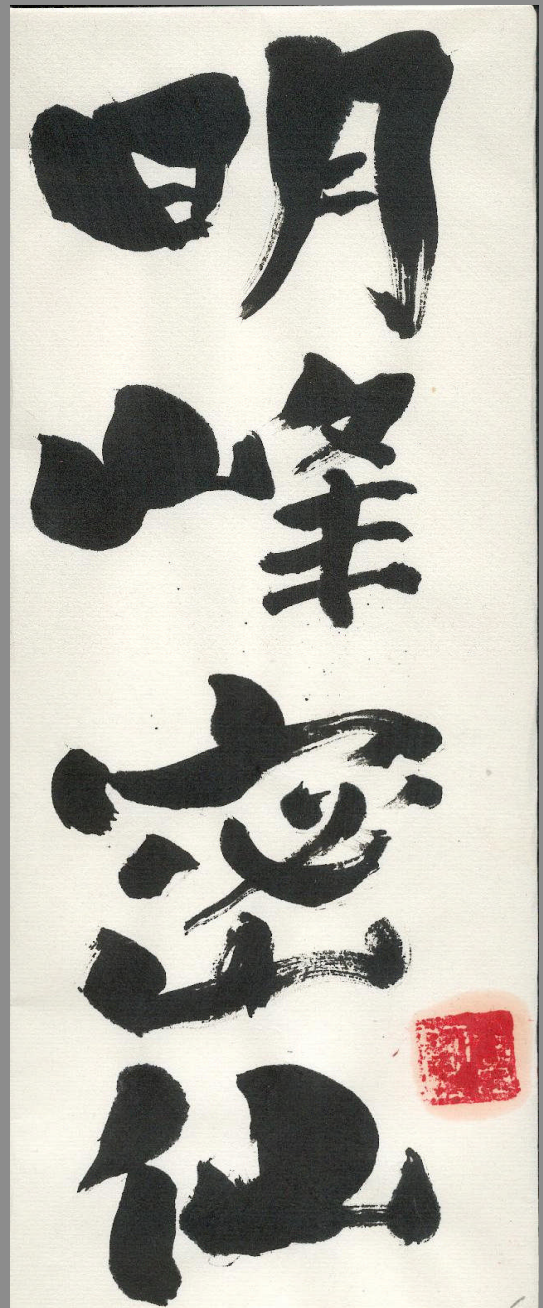 明峰密仙